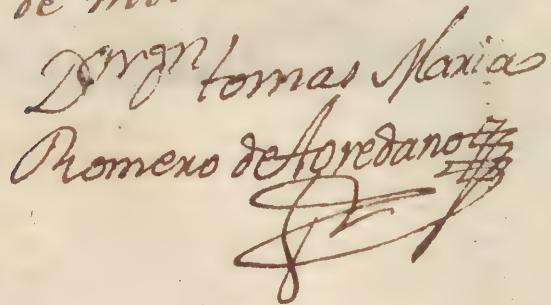 de
Dn Jn tomas Maria
Romero de Agredano